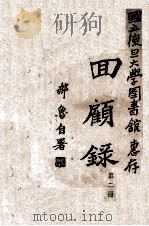 國立復旦大學圖書館惠存
回顧錄
第二冊
鄒魯自署